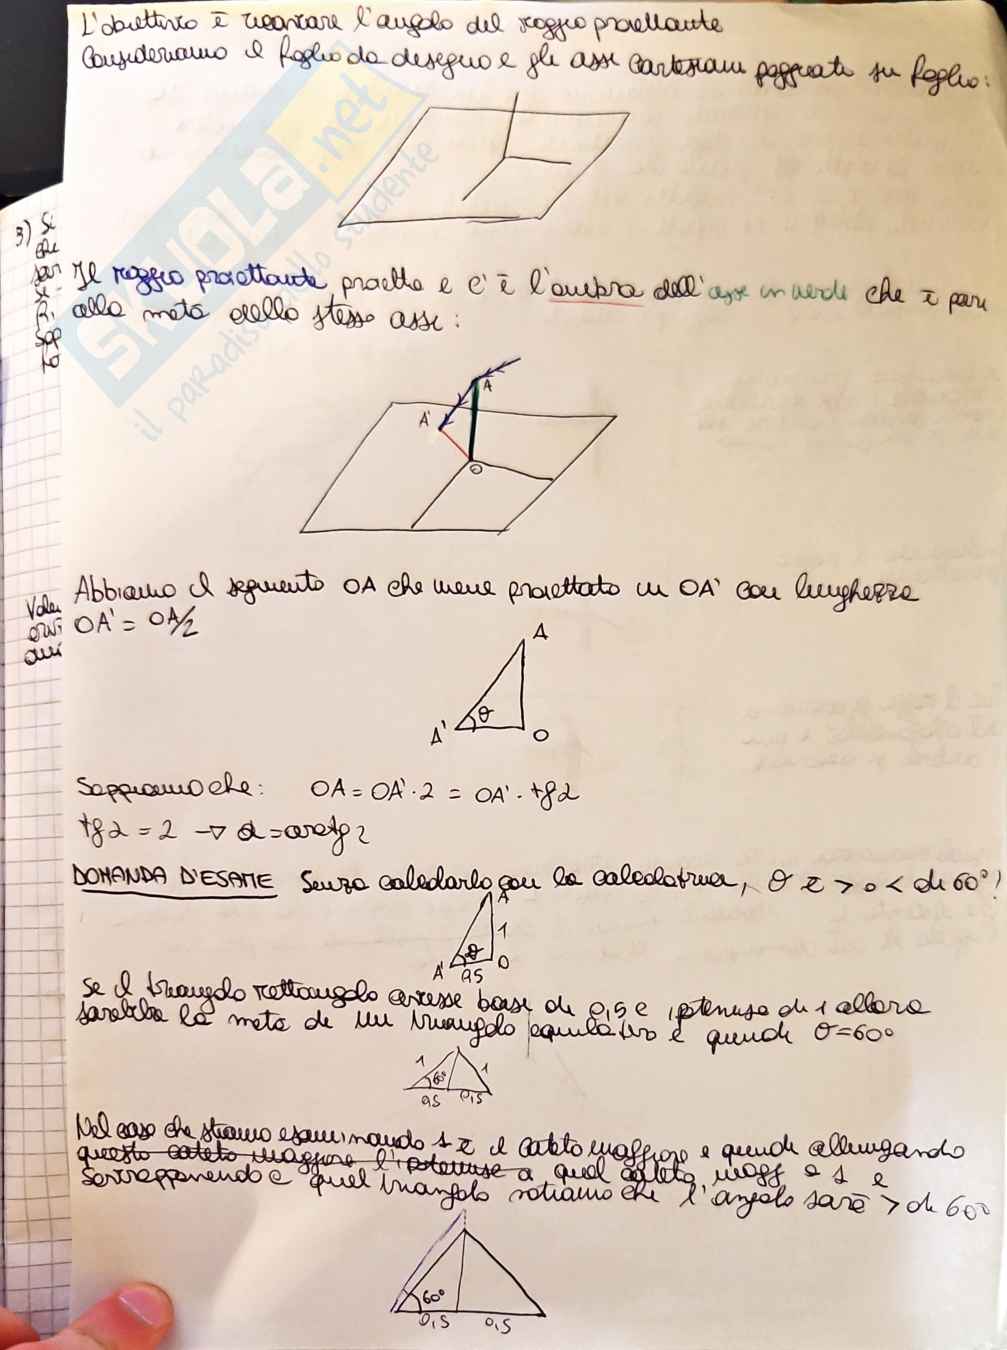 L'obiettivo è ricavare l'angolo del raggio proiettante
Consideriamo il foglio da disegno e gli assi cartesiani poggiati su foglio:
SKUOLA.net
il paradiso dello studente
3) Si
Il raggio proiettante proietta e c'è l'ombra dell'asse in verde che è pari
alla metà dello stesso asse:
A
A'
O
Abbiamo il segmento OA che viene proiettato in OA' con lunghezza
OA' = OA/2
A
A' θ O
Sappiamo che: OA = OA' · 2 = OA' · tg α
tg α = 2 → α = arctg 2
DOMANDA D'ESAME Senza calcolarlo con la calcolatrice, θ è > o < di 60°?
A
1
A' θ O
0,5
Se il triangolo rettangolo avesse base di 0,5 e ipotenusa di 1 allora
sarebbe la metà di un triangolo equilatero e quindi θ=60°
1 60° 1
0,5 0,5
Nel caso che stiamo esaminando 1 è il cateto maggiore e quindi allungando
questo cateto maggiore l'ipotenusa a quel cateto magg a 1 e
sovrapponendo a quel triangolo notiamo che l'angolo sarà > di 60°
60°
0,5 0,5